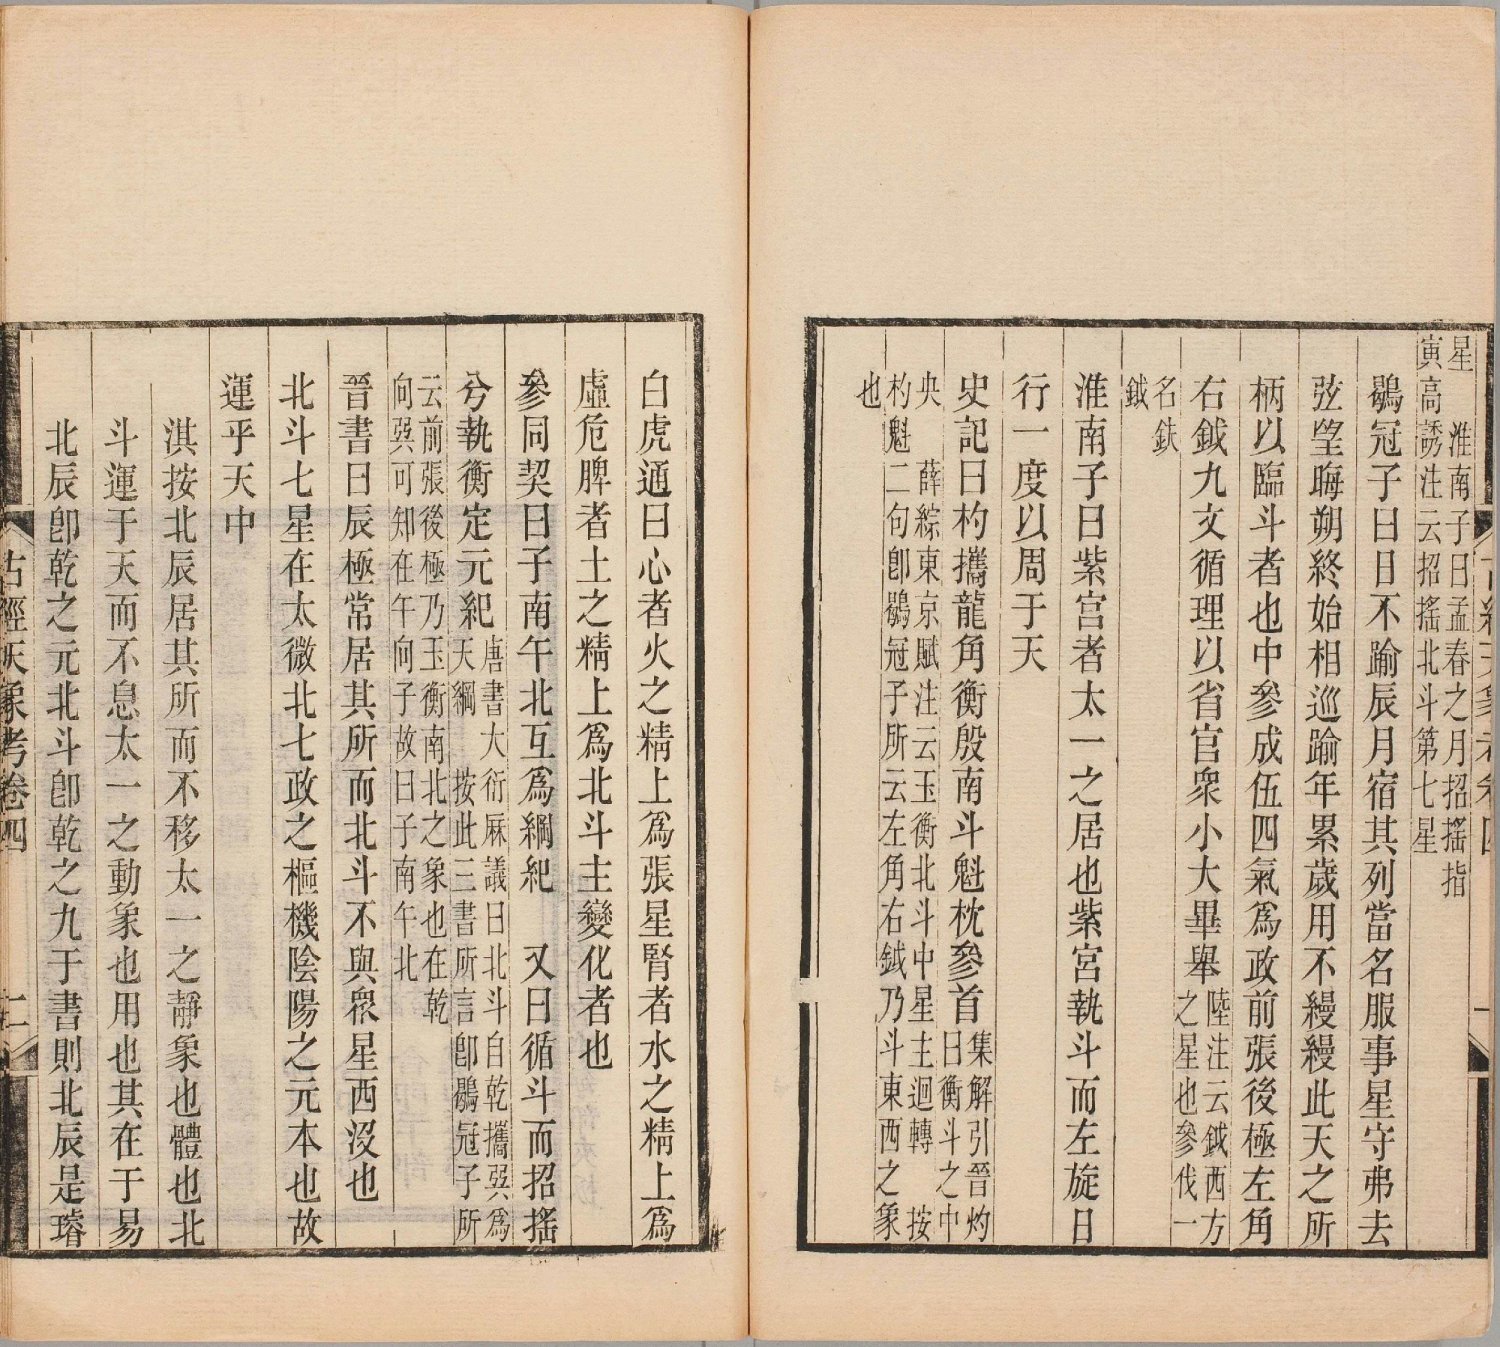 星　淮南子曰孟春之月招搖指
寅高誘注云招搖北斗第七星
鶡冠子曰日不踰辰月宿其列當名服事星守弗去
弦望晦朔終始相巡踰年累歲用不縵縵此天之所
柄以臨斗者也中參成伍四氣爲政前張後極左角
右鉞九文循理以省官衆小大畢舉
陸注云鉞西方
之星也參伐一
名鈇
鉞
淮南子曰紫宮者太一之居也紫宮執斗而左旋日
行一度以周于天
史記曰杓攜龍角衡殷南斗魁枕參首
集解引晉灼
曰衡斗之中
央　薛綜東京賦注云玉衡北斗中星主迴轉　按
杓魁二句卽鶡冠子所云左角右鉞乃斗東西之象
也
白虎通曰心者火之精上爲張星腎者水之精上爲
虛危脾者土之精上爲北斗主變化者也
參同契曰子南午北互爲綱紀　又曰循斗而招搖
兮執衡定元紀
唐書大衍厤議曰北斗自乾攜巽爲
天綱　按此三書所言卽鶡冠子所
云前張後極乃玉衡南北之象也在乾
向巽可知在午向子故曰子南午北
晉書曰辰極常居其所而北斗不與衆星西沒也
北斗七星在太微北七政之樞機陰陽之元本也故
運乎天中
淇按北辰居其所而不移太一之靜象也體也北
斗運于天而不息太一之動象也用也其在于易
北辰卽乾之元北斗卽乾之九于書則北辰是璿
古經天象考卷四
二